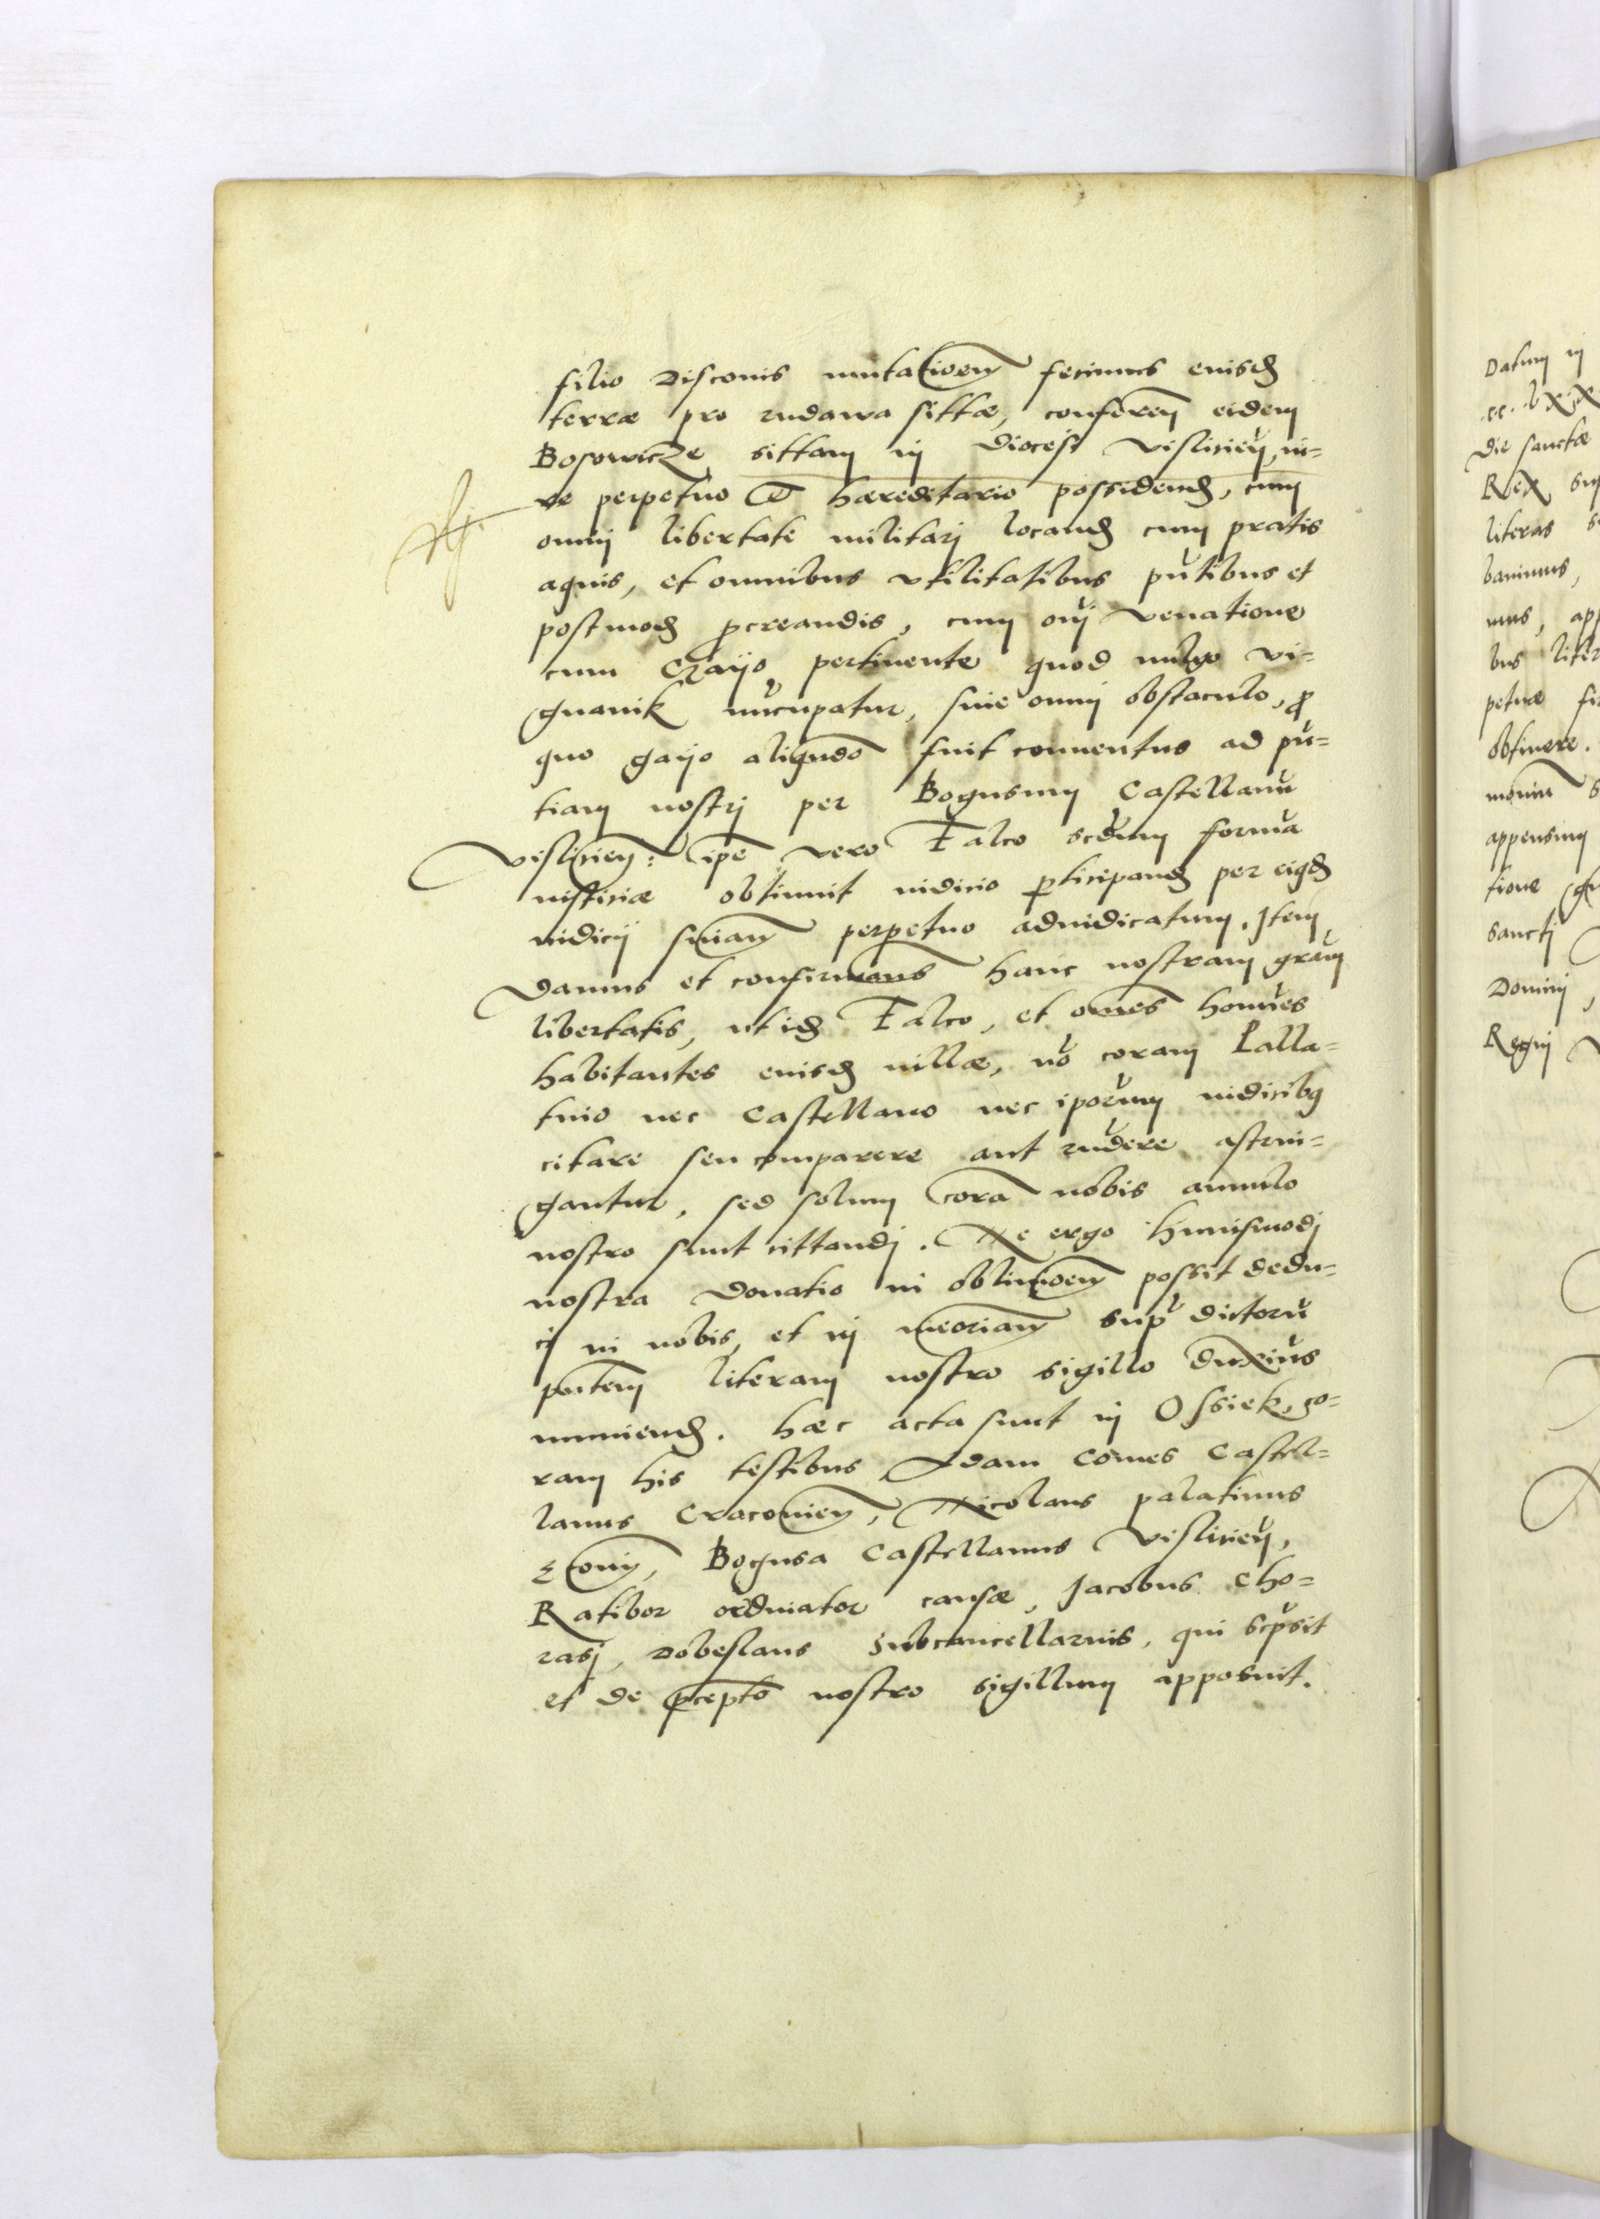 filio Disconis mutatioem fecimus euisd
terræ pro rudawa sittæ, conferem eidem
Bosowicze sittam in diocesi vislicien, iu=
re perpetuo et hæreditario possidend, cum
omni libertate militari locand cum pratis
aquis, et omnibus vtilitatibus pntibus et
postmod pcreandis, cum oni venatione
cum Gayo pertinente quod uulgo vi=
gvanik nucupatur, sine omni obstaculo, p
quo gayo aliqndo fuit conuentus ad pn=
tiam nostri per Bogusum Castellanu
vislicien: ipe vero Falco scdum forma
iusticiæ obtinuit iudicio pticipand per eigd
iudicij sniam perpetuo adiudicatum. Item
damus et confirmams hanc nostram gram
libertatis, ut id Falco, et omes homies
habitantes euisd uillæ, no coram Palla=
tino nec Castellano nec iporum iudicibq
citare seu comparere aut rndere astrin=
gantur, sed solum cora nobis annulo
nostro sunt cittandi. Ne ergo huiusmodi
nostra donatio in obliuioem possit dedu=
ci in nobis, et in meoriam sup dictoru
pntem literam nostro sigillo duxius
muniend. hæc acta sunt in Ossiek, co=
ram his testibus Adam Comes Castel=
lanus Cracouien, Nicolaus palatinus
Bogusa Castellanus vislicien,
Ratibor ordinator causæ, Jacobus Cho=
rasi, Dobeslaus Subcancellarius, qui scpsit
et de pcepto nostro sigillum apposuit.
Datum in
die sanctæ
Rex
literas
banimus,
mus, app
bus liter
petuæ fir
obtinere.
appensum
tione
sancti
Domini,
Regni